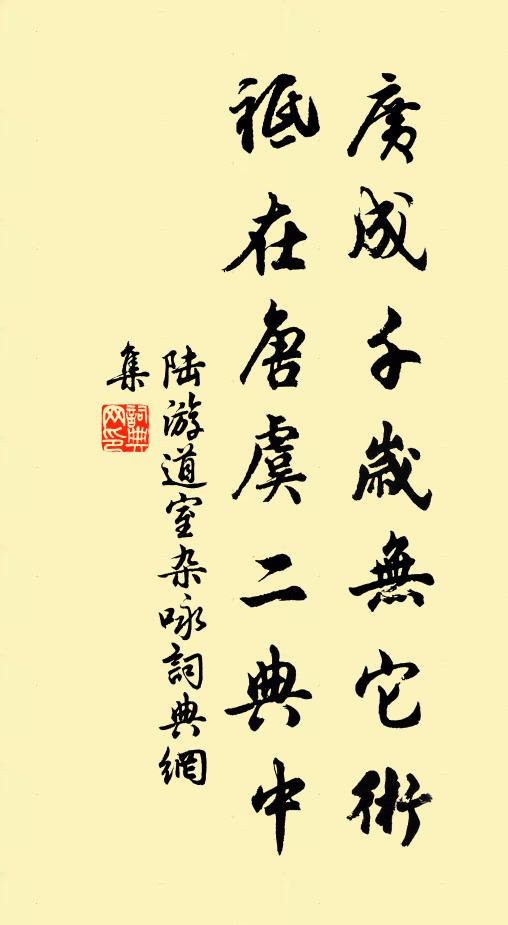 廣成千歲無它術
祗在唐虞二典中
陆游道室杂咏詞典網
集
詞典网印